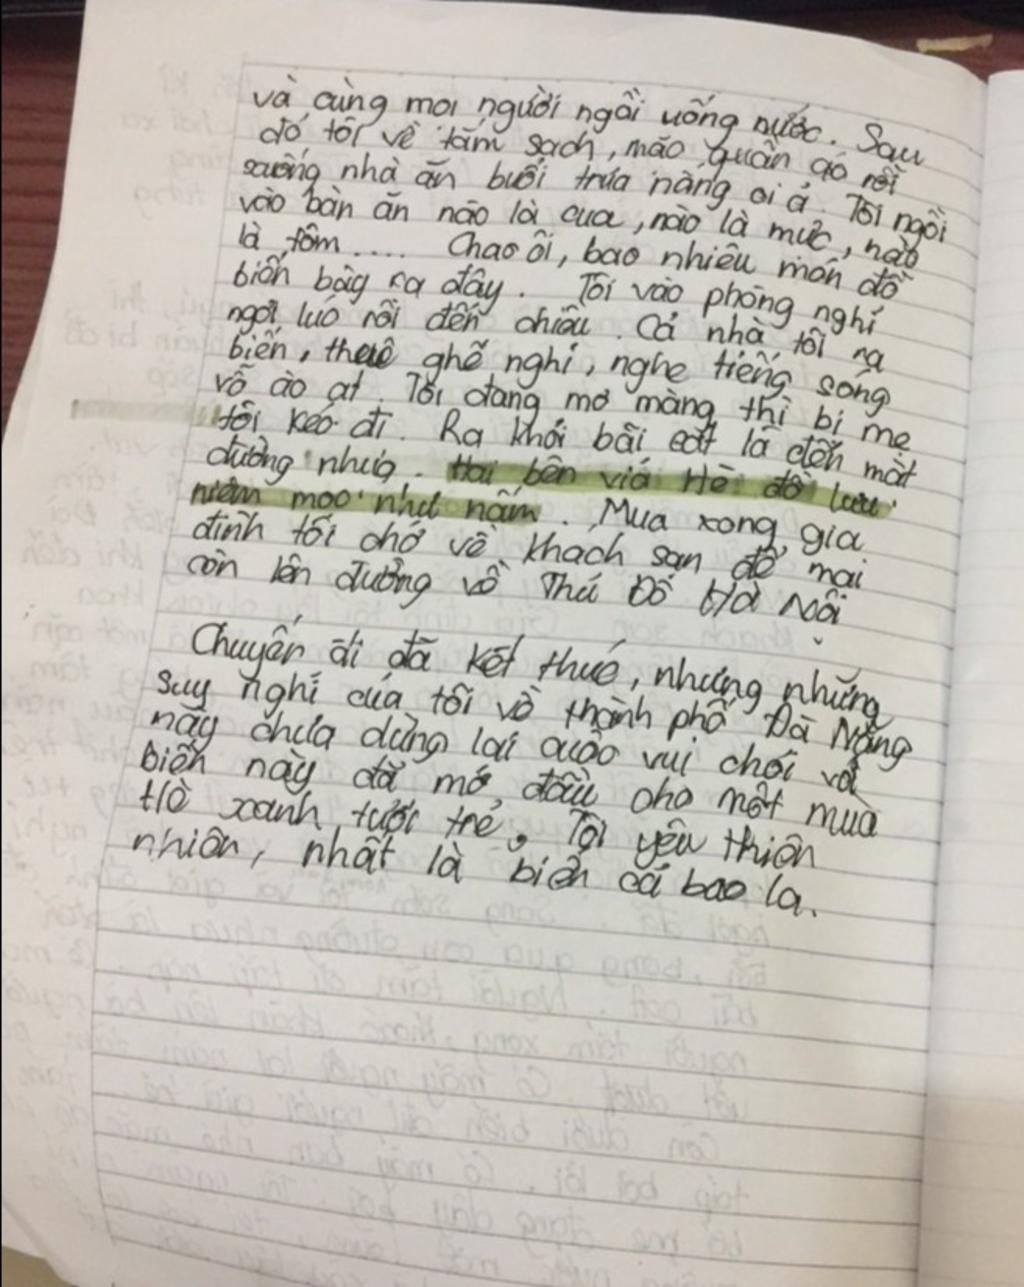 và cùng mọi người ngồi uống nước. Sau
đó tôi về tắm sạch, mão quần áo rồi
xuống nhà ăn buổi trưa nàng oi ả. Tôi ngồi
vào bàn ăn nào là cua, nào là mực, nào
là tôm.... Chao ôi, bao nhiêu món đồ
biển bày ra đây. Tôi vào phòng nghỉ
ngơi lúc rồi đến chiều. Cả nhà tôi ra
biển, thuê ghế nghỉ, nghe tiếng sóng
vỗ ào ạt. Tôi đang mơ màng thì bị mẹ
tôi kéo đi. Ra khỏi bãi cát là đến mặt
đường nhựa. Hai bên viả Hè đồ lưu
niệm mọc như nấm. Mua xong gia
đình tôi chở về khách sạn để mai
còn lên đường về Thủ Đô Hà Nội
Chuyến đi đã kết thúc, nhưng những
suy nghĩ của tôi về thành phố Đà Nẵng
nãy chưa dừng lại cuộc vui chơi với
biển này đã mở đầu cho một mùa
Hè xanh tươi trẻ. Tôi yêu thiên
nhiên, nhất là biển cả bao la.